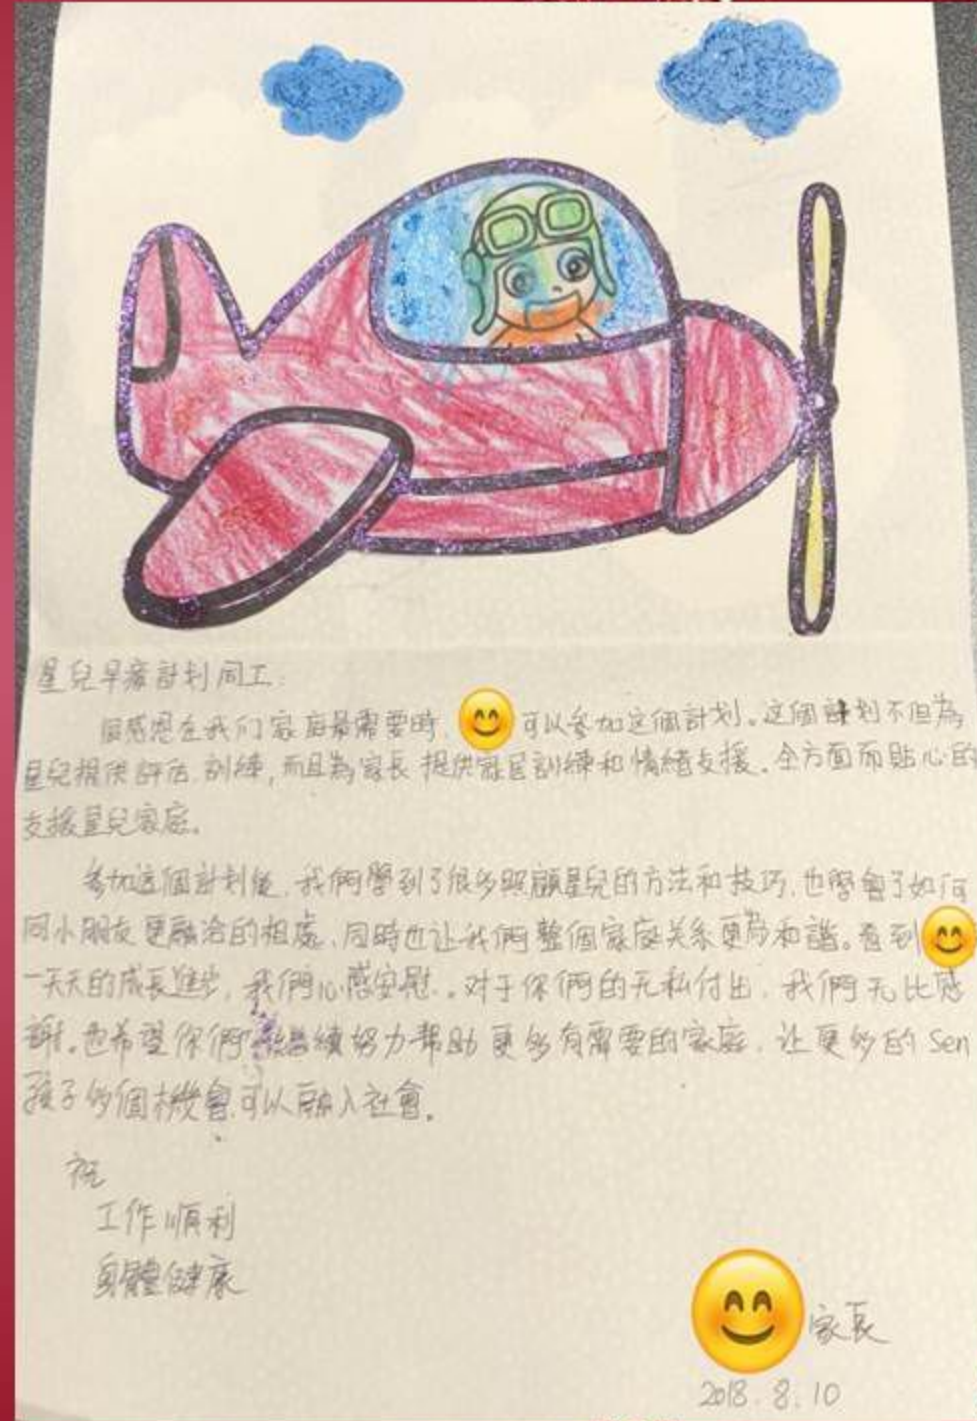 星兒早療計划同工:
很感恩在我们家庭最需要時 可以參加这個計划。这個計划不但為
星兒提供評估 訓練,而且為家長 提供家居訓練和情緒支援。全方面而貼心的
支援星兒家庭。
參加这個計划後,我們學到了很多照顧星兒的方法和技巧,也學會了如何
同小朋友更融洽的相處,同時也让我們整個家庭关系更為和諧。看到
一天天的成長進步,我們心感安慰。对于你們的无私付出,我們无比感
謝。也希望你們繼續努力帮助更多有需要的家庭,让更多的Sen
孩子多個機會可以融入社會。
祝
工作順利
身體健康
家長
2018.8.10